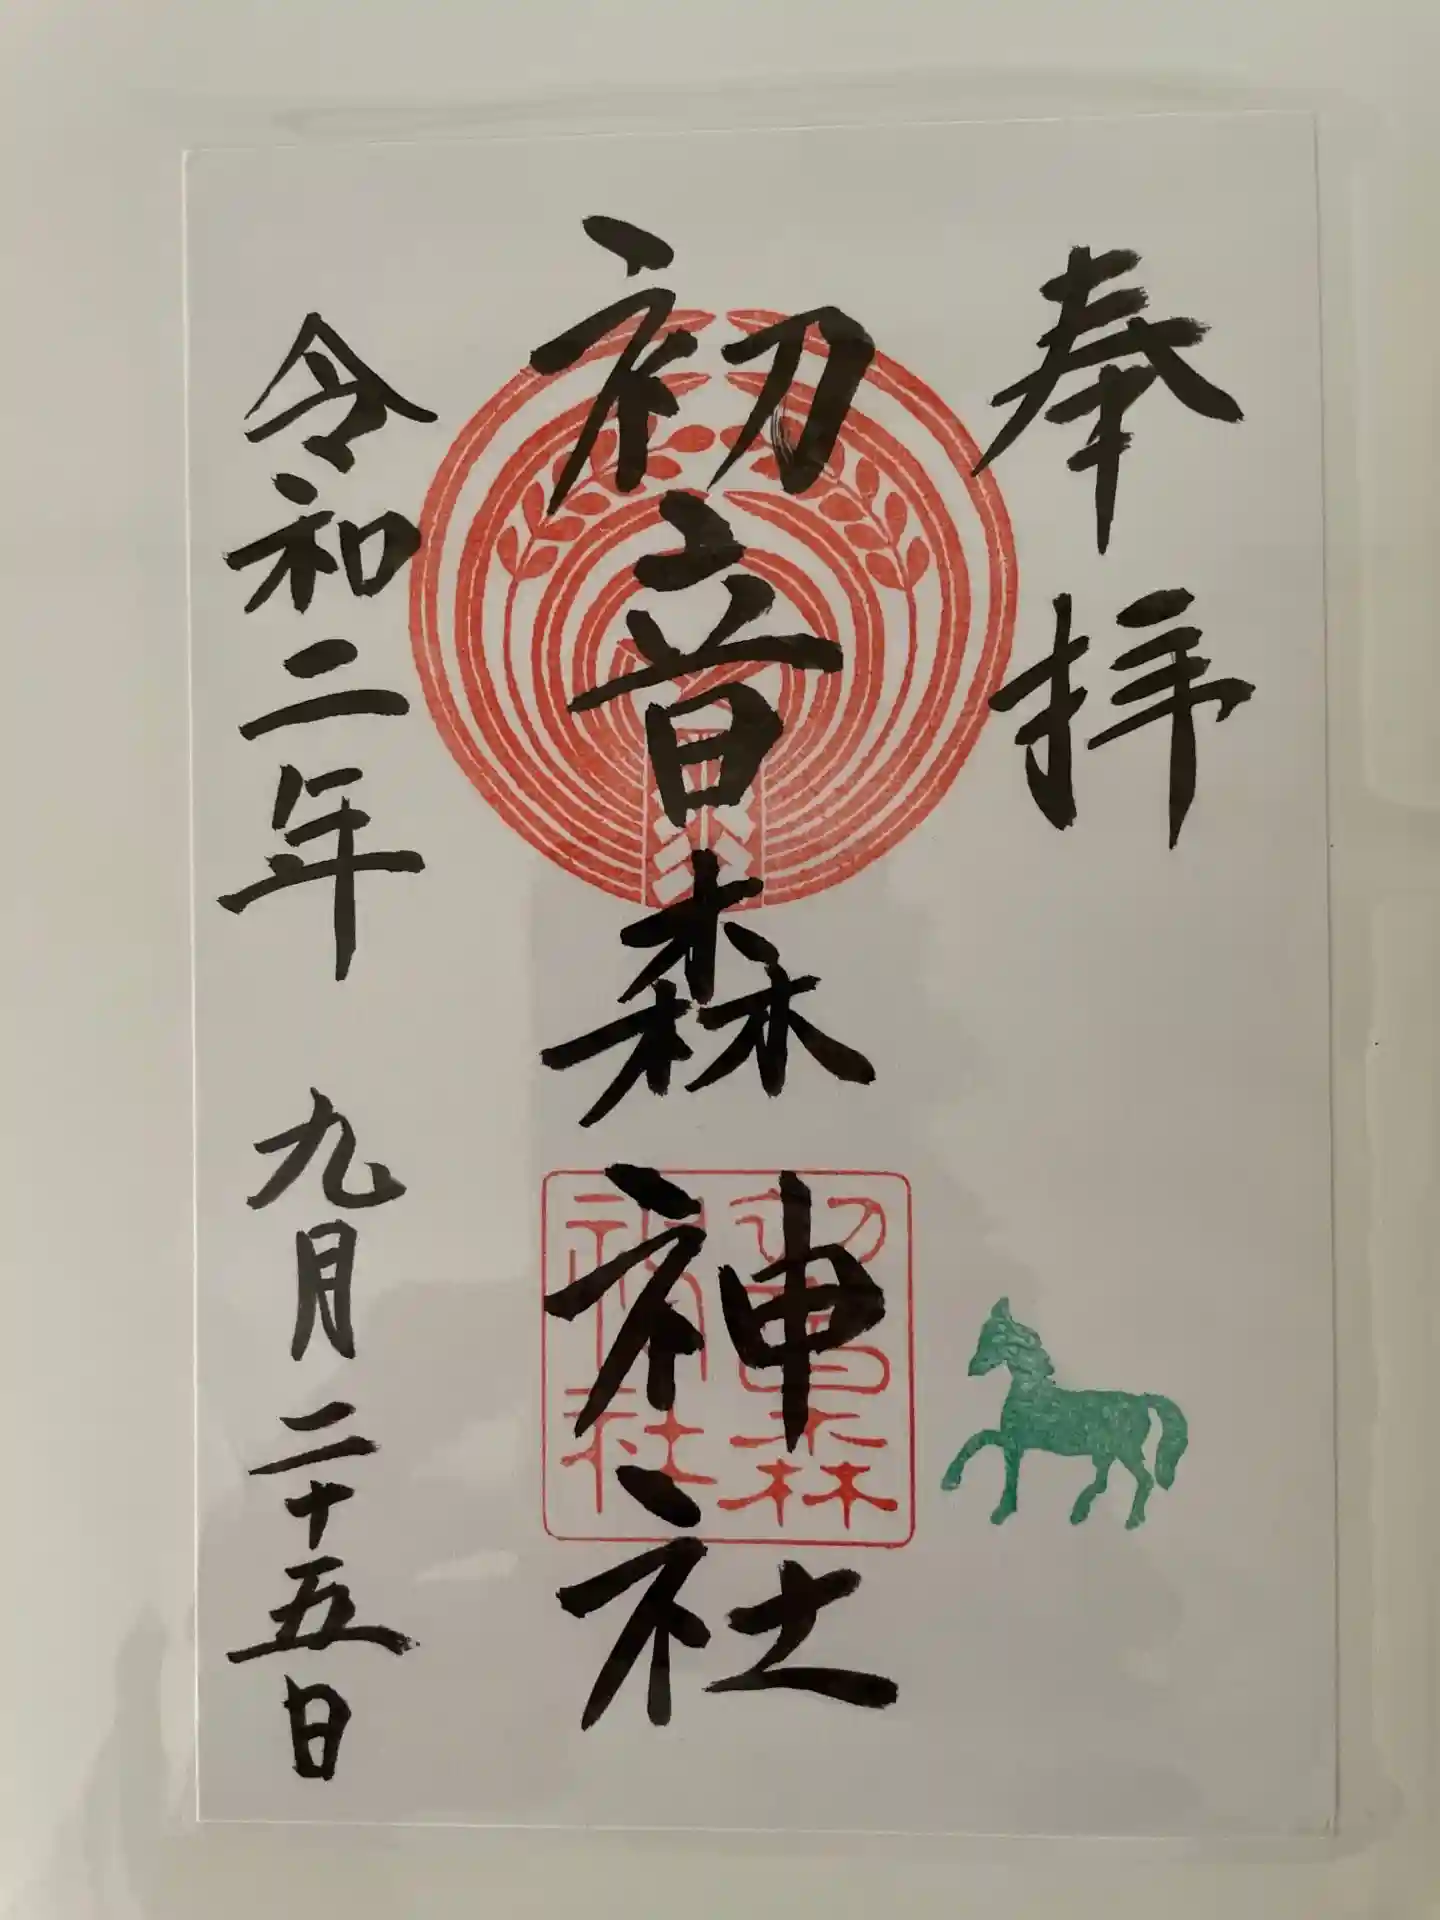 奉拝
初音森神社
初音森
神社
令和二年 九月二十五日